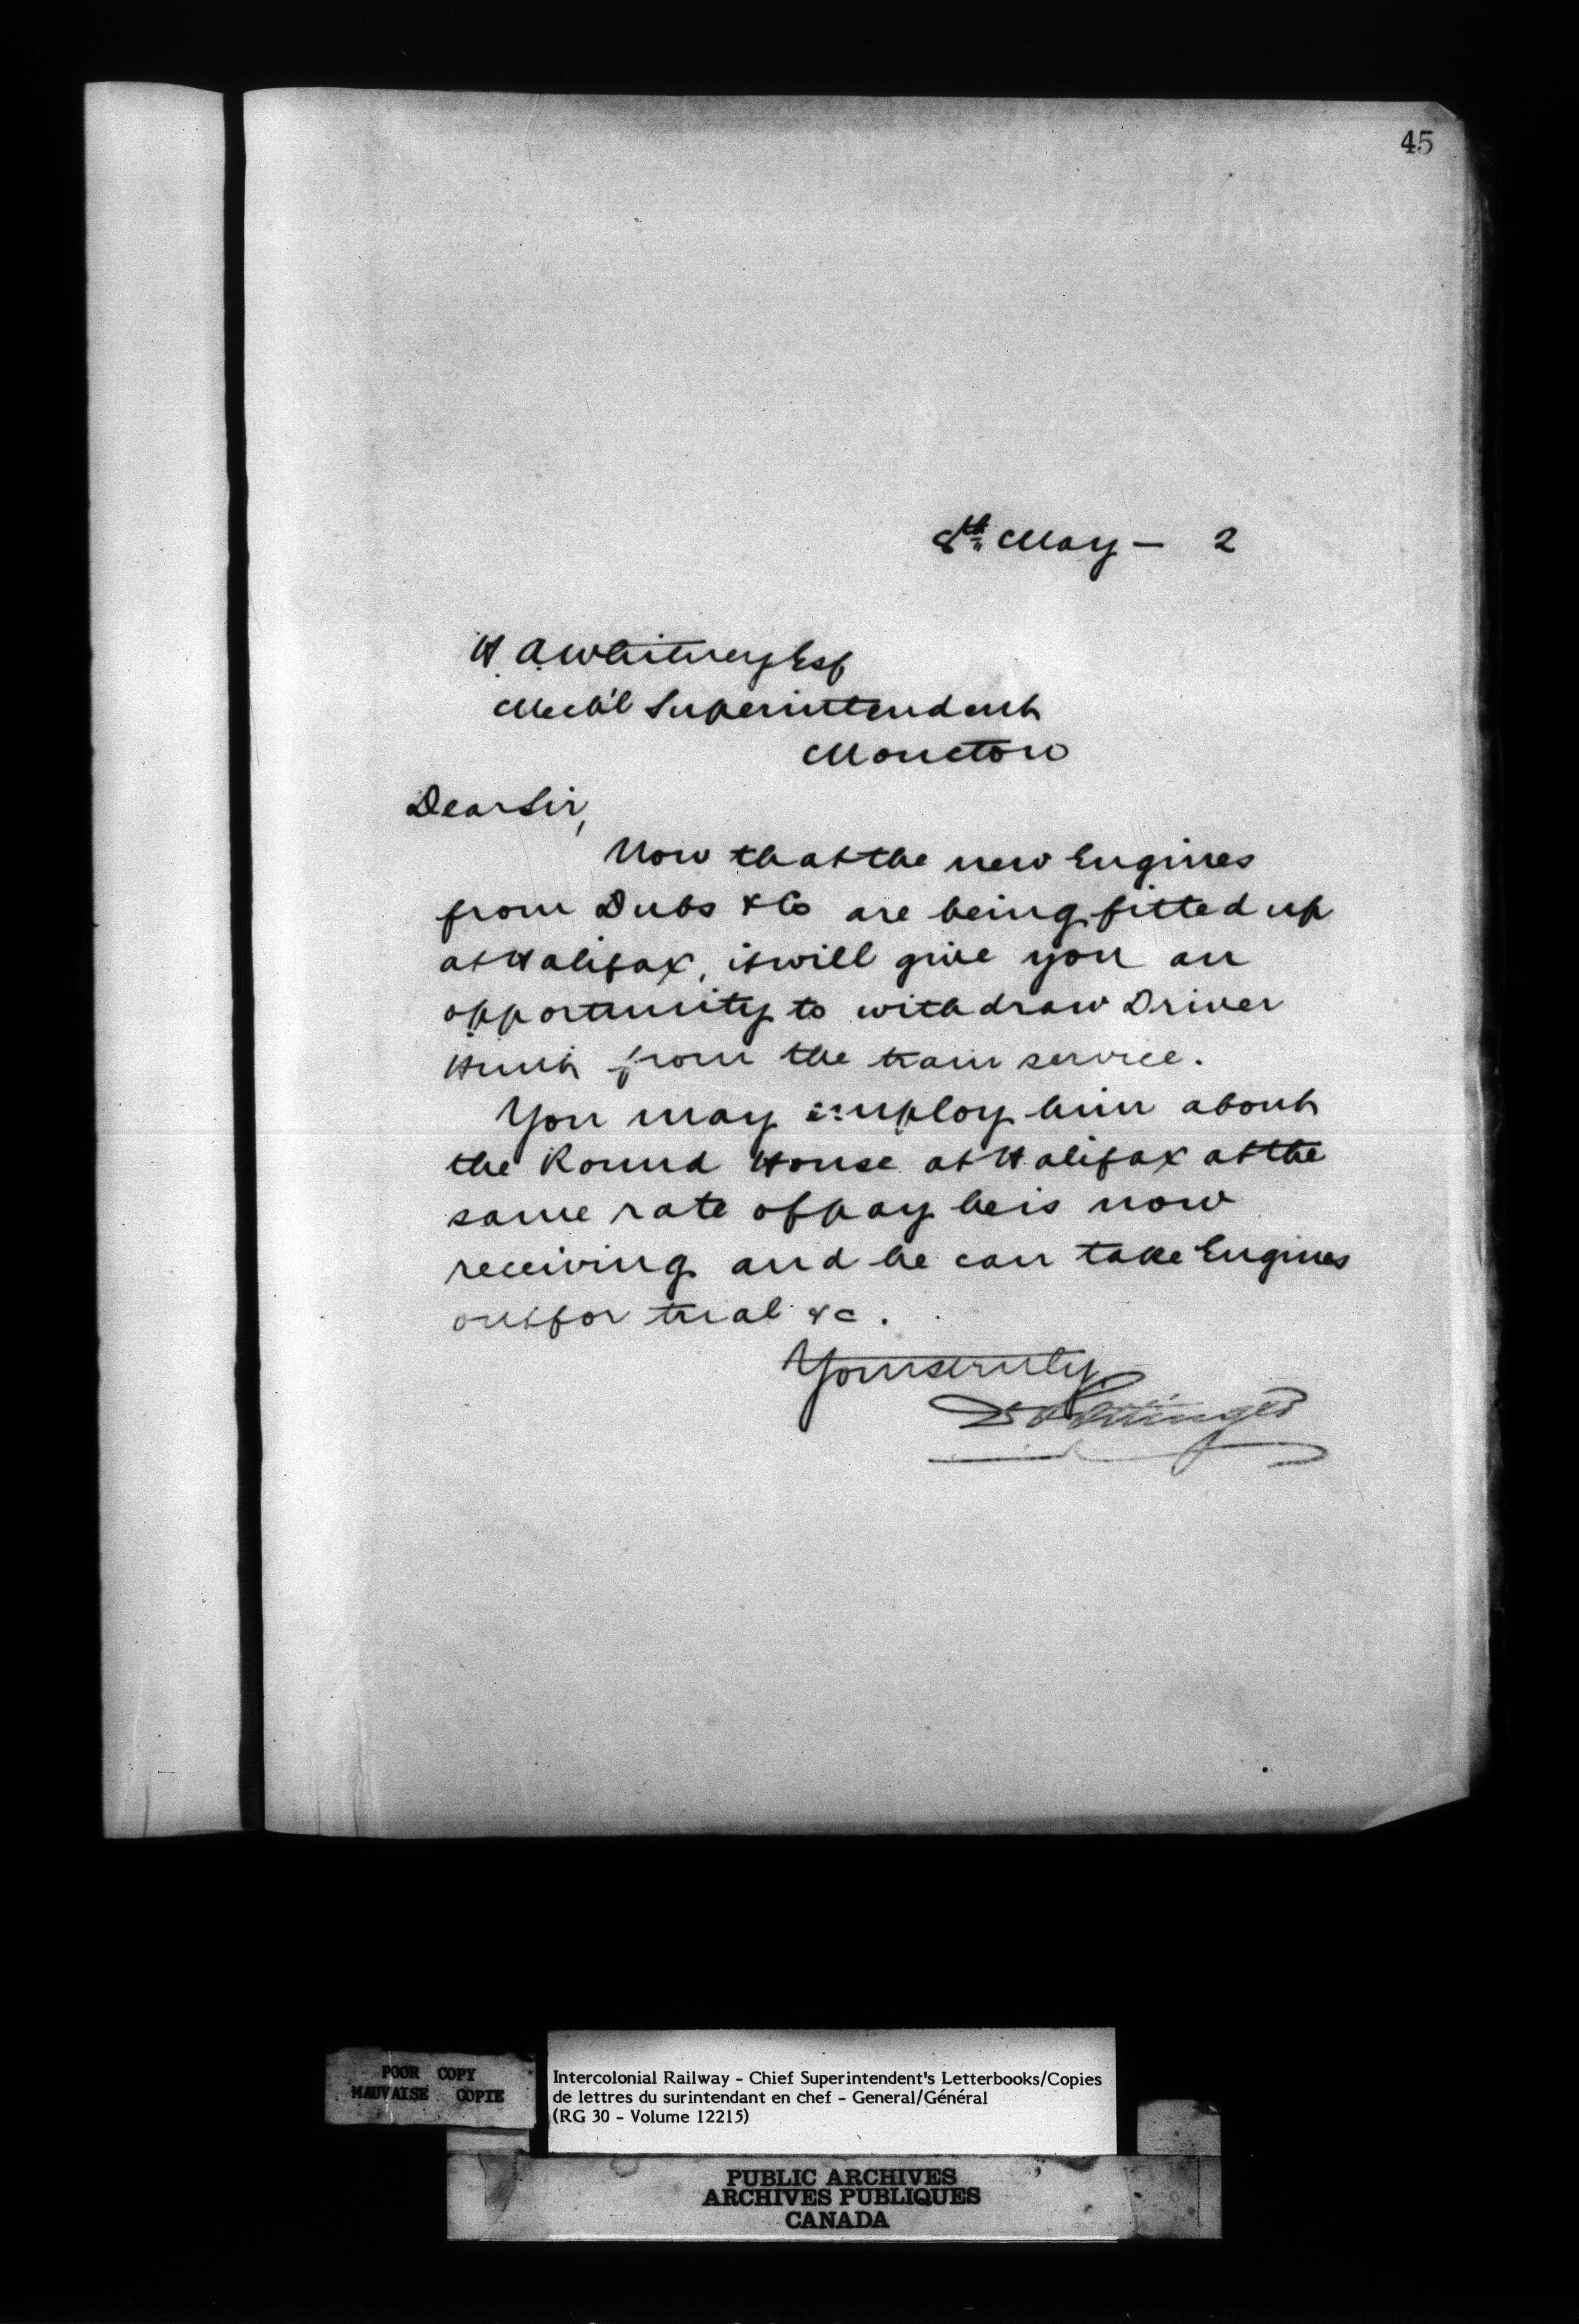 45
8th May — 2
H. A. Whitney Esq
Mech'l Superintendent
Moncton
Dear Sir,
Now that the new Engines
from Dubs & Co are being fitted up
at Halifax, it will give you an
opportunity to withdraw Driver
Hunt from the train service.
You may employ him about
the Round House at Halifax at the
same rate of pay he is now
receiving and he can take Engines
out for trial &c.
Yours truly,
D Pottinger
POOR COPY
MAUVAISE COPIE
Intercolonial Railway - Chief Superintendent's Letterbooks/Copies
de lettres du surintendant en chef - General/Général
(RG 30 - Volume 12215)
PUBLIC ARCHIVES
ARCHIVES PUBLIQUES
CANADA